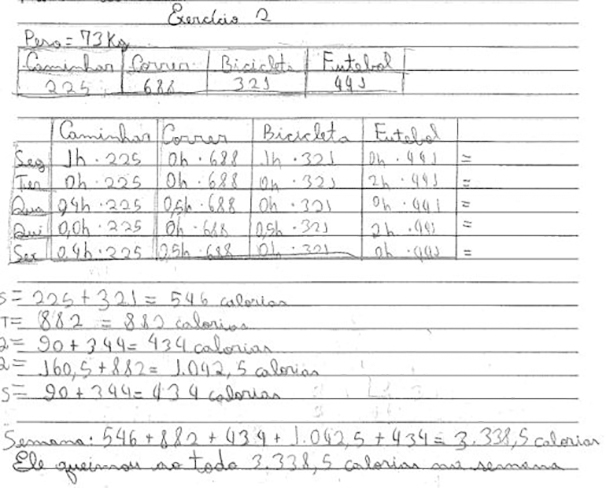 Exercício 2
Peso = 73Kg
Caminhar Correr Bicicleta Futebol
225 688 321 441
Caminhar Correr Bicicleta Futebol
Seg 1h · 225 0h · 688 1h · 321 0h · 441 =
Ter 0h · 225 0h · 688 0h · 321 2h · 441 =
Qua 0,4h · 225 0,5h · 688 0h · 321 0h · 441 =
Qui 0,0h · 225 0h · 688 0,5h · 321 2h · 441 =
Sex 0,4h · 225 0,5h · 688 0h · 321 0h · 441 =
S = 225 + 321 = 546 calorias
T = 882 = 882 calorias
Q = 90 + 344 = 434 calorias
Q = 160,5 + 882 = 1.042,5 calorias
S = 90 + 344 = 434 calorias
Semana: 546 + 882 + 434 + 1.042,5 + 434 = 3.338,5 calorias
Ele queimou ao todo 3.338,5 calorias na semana